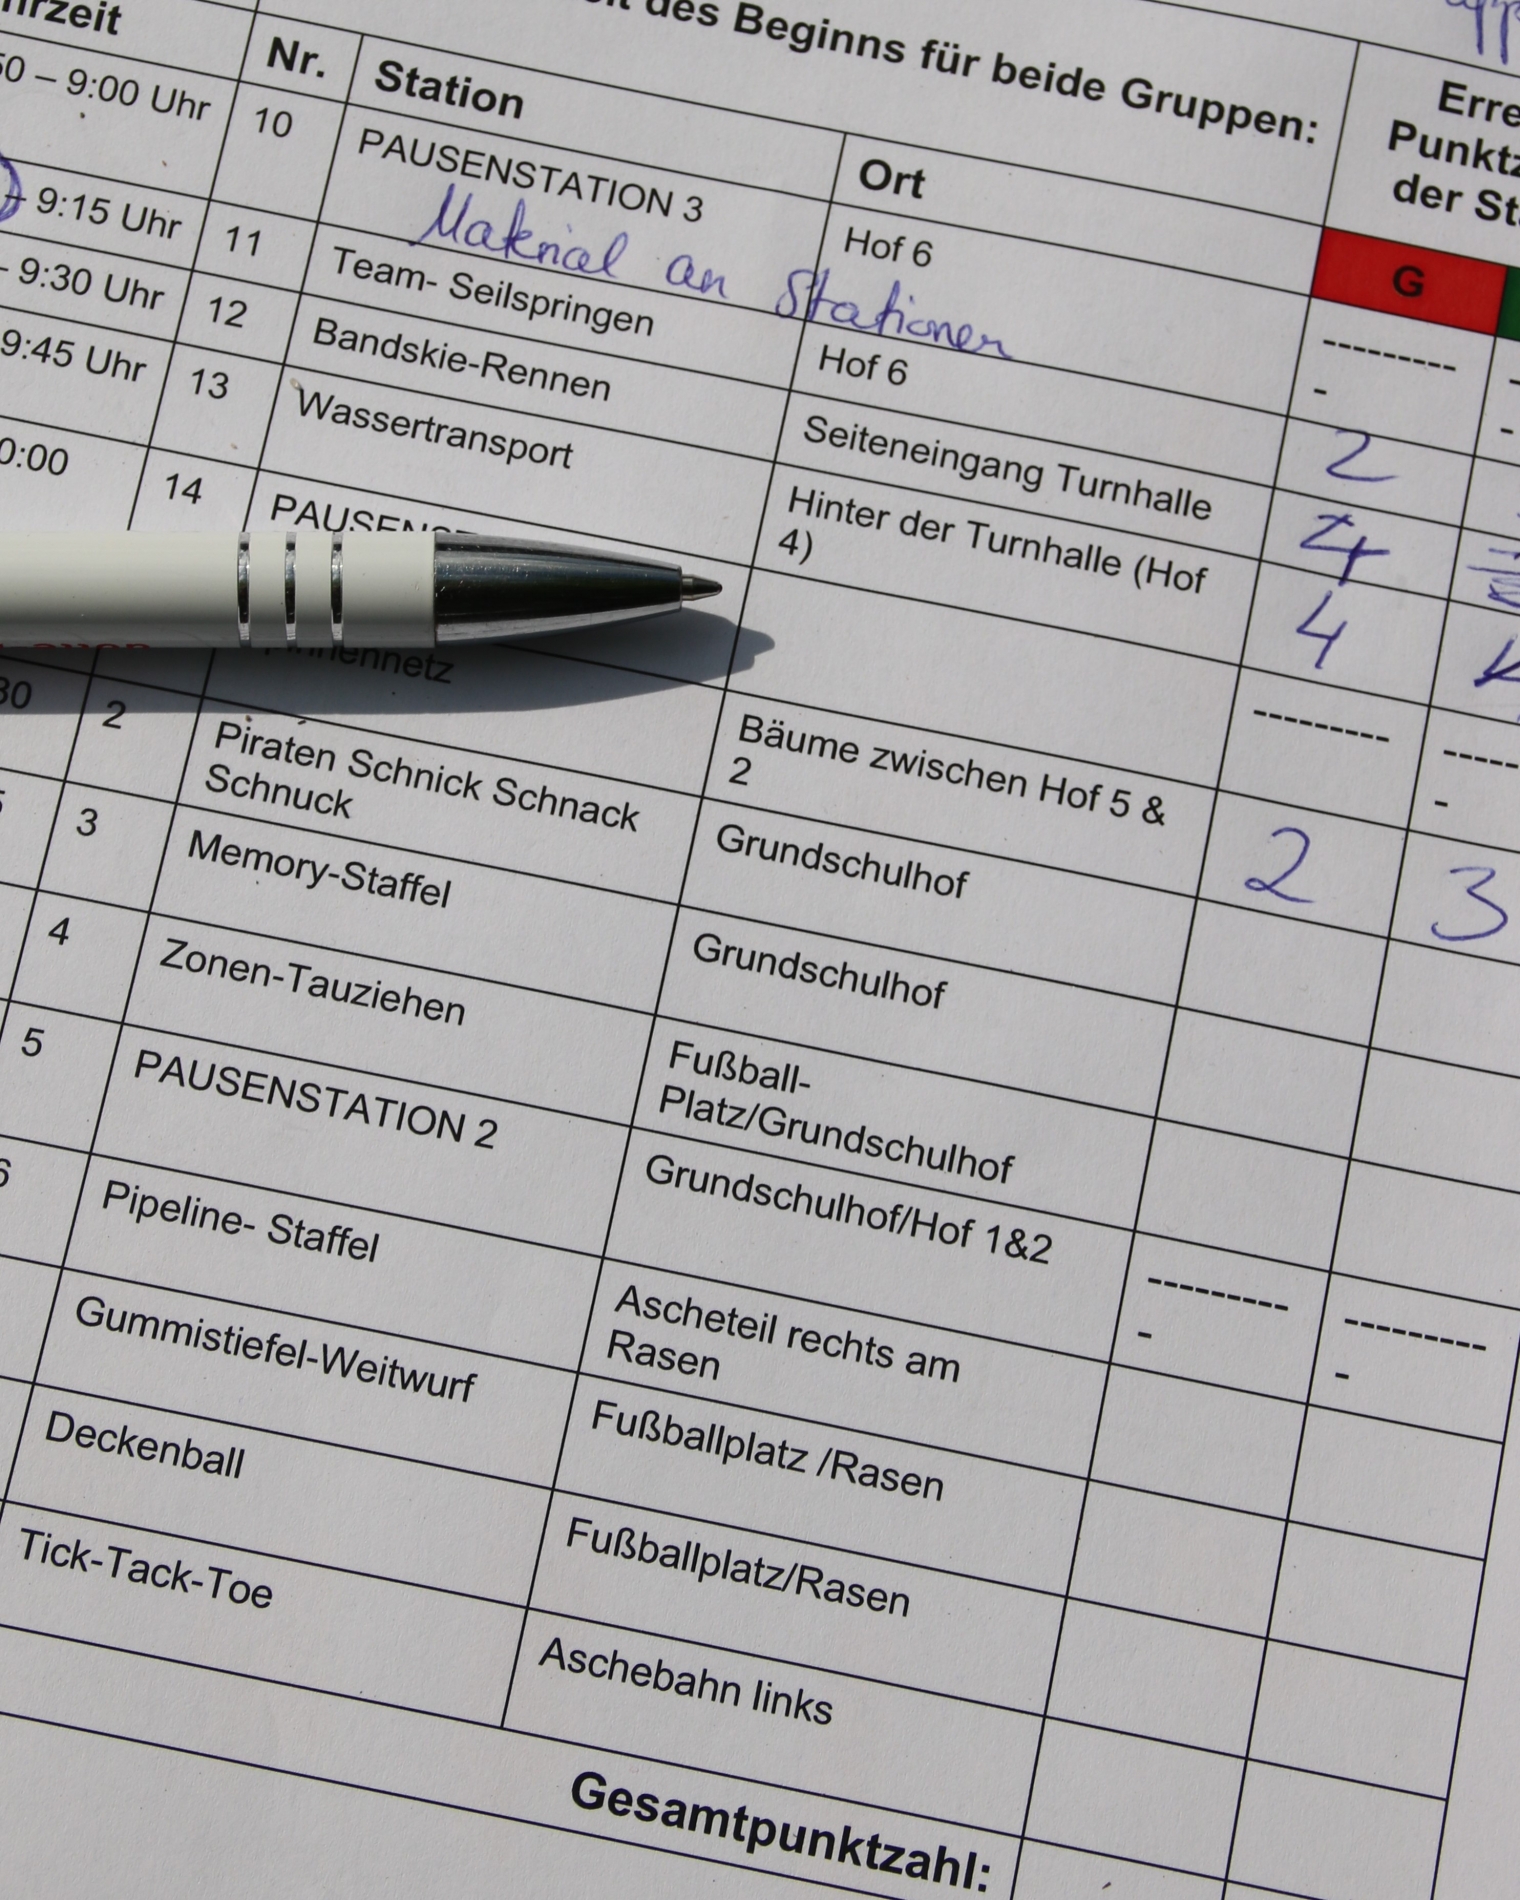 des Beginns für beide Gruppen:
Nr. Station Ort
Punktz
der St
G
50 – 9:00 Uhr 10 PAUSENSTATION 3 Hof 6 ---------
-
Material an Stationen
– 9:15 Uhr 11 Team- Seilspringen Hof 6 2
- 9:30 Uhr 12 Bandskie-Rennen Seiteneingang Turnhalle 4
9:45 Uhr 13 Wassertransport Hinter der Turnhalle (Hof 4
4)
0:00 14 ---------
-----
-
Bäume zwischen Hof 5 & 2 3
2
30 2 Piraten Schnick Schnack Grundschulhof
Schnuck
3 Memory-Staffel Grundschulhof
4 Zonen-Tauziehen Fußball-
Platz/Grundschulhof
5 PAUSENSTATION 2 Grundschulhof/Hof 1&2 --------- ---------
- -
6 Pipeline- Staffel Ascheteil rechts am
Rasen
Gummistiefel-Weitwurf Fußballplatz /Rasen
Deckenball Fußballplatz/Rasen
Tick-Tack-Toe Aschebahn links
Gesamtpunktzahl: